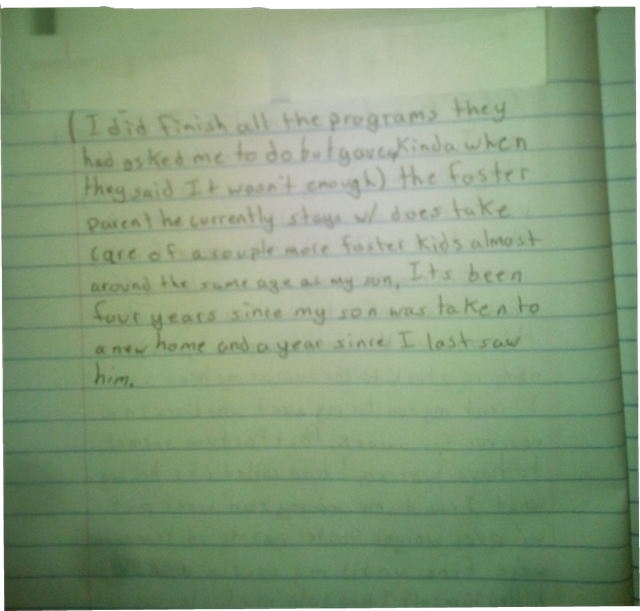 (I did finish all the programs they
had asked me to do but gave kinda when
they said It wasn't enough) the foster
parent he currently stays w/ does take
care of a couple more foster kids almost
around the same age as my son, Its been
four years since my son was taken to
a new home and a year since I last saw
him.